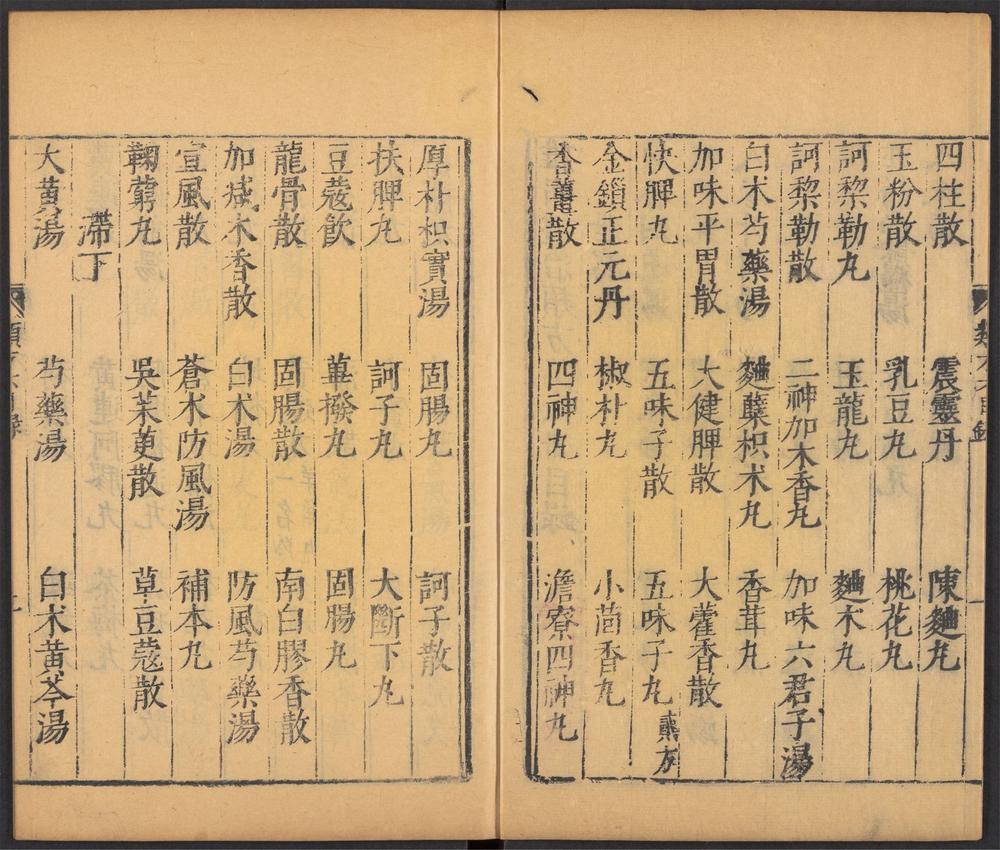 四柱散 震靈丹 陳麯丸
玉粉散 乳豆丸 桃花丸
訶黎勒丸 玉龍丸 麯朮丸
訶黎勒散 二神加木香丸 加味六君子湯
白朮芍藥湯 麯櫱枳朮丸 香茸丸
加味平胃散 大健脾散 大藿香散
快脾丸 五味子散 五味子丸
金鎖正元丹 椒朴丸 小茴香丸
香薑散 四神丸 澹寮四神丸
厚朴枳實湯 固腸丸 訶子散
扶脾丸 訶子丸 大斷下丸
豆蔻飲 蓽撥丸 固腸丸
龍骨散 固腸散 南白膠香散
加減木香散 白朮湯 防風芍藥湯
宣風散 蒼朮防風湯 補本丸
鞠藭丸 吳茱萸散 草豆蔻散
滯下
大黃湯 芍藥湯 白朮黃芩湯